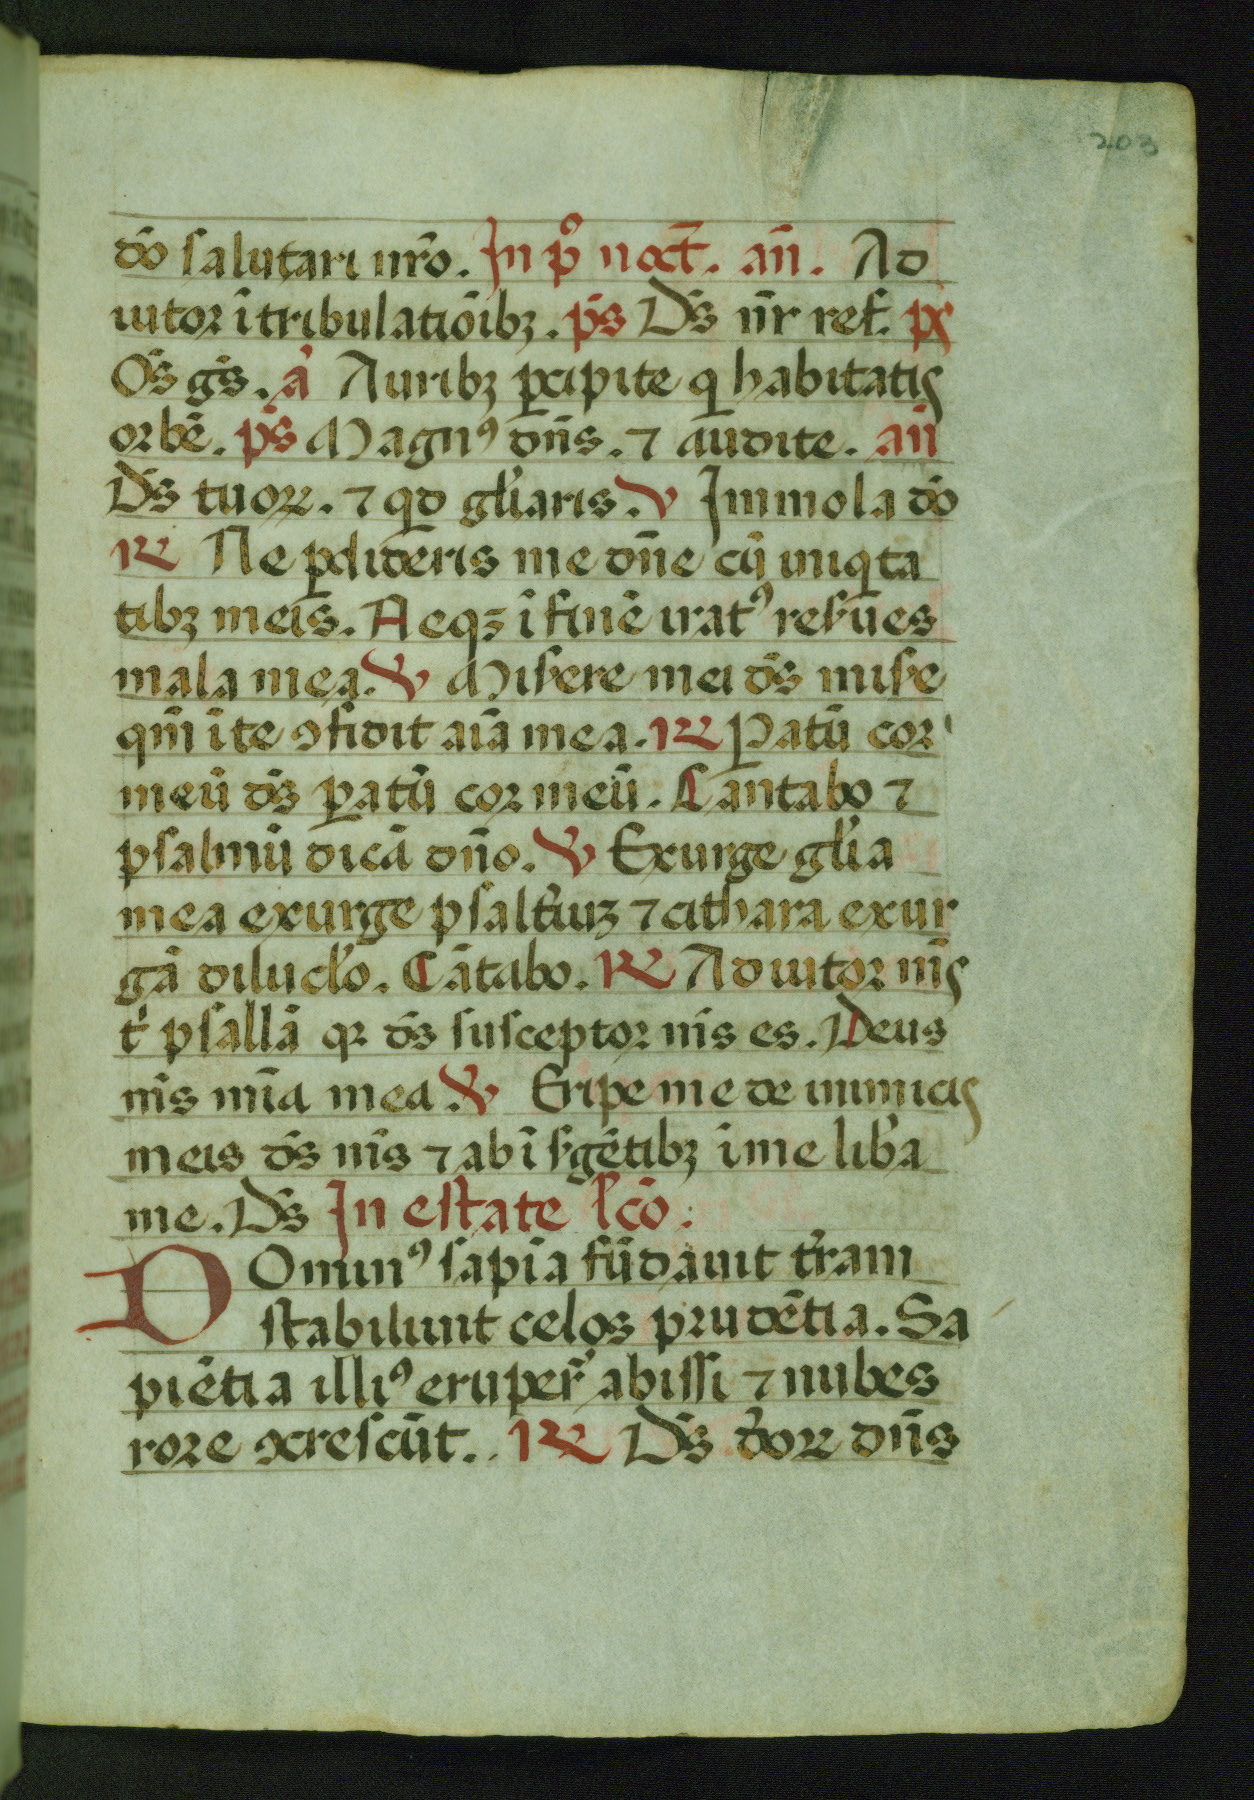 203
dō salutari nr̄o. In p̊ noct̄. an̄. Ad
iutor ī tribulatiōibꝫ. p̄s Ds̄ nr̄ ref. ps̄
Os̄ gs̄. a̓ Auribꝫ ꝑcipite q habitatis
orbē. p̄s Magnꝰ dn̄s. ⁊ audite. an̄
Ds̄ tuoꝝ. ⁊ qd gl̓iaris. V Immola dō
℞ Ne ꝑdideris me dn̄e cū iniqta
tibꝫ meis. Neqꝫ ī finē iratꝰ resͥues
mala mea. V Misere mei ds̄ mise
qm̄ ī te ꝯfidit aīa mea. ℞ Patū cor
meū ds̄ ꝑatū cor meū. Cantabo ⁊
psalmū dicā dn̄o. V Exurge gl̓ia
mea exurge psalt̓iuꝫ ⁊ cithara exur
gā diluclo. Cātabo. ℞ Adiutor m̄s
t̓ psallā qꝛ ds̄ susceptor m̄s es. Deus
m̄s mīa mea. V Eripe me de inimicis
meis ds̄ m̄s ⁊ ab īsgētibꝫ ī me lib̓a
me. Ds̄ In estate lc̄o.
DOminꝰ sapīa fūdauit t̓ram
stabiliuit celos prudētia. Sa
piētia illiꝰ eruper̓ abissi ⁊ nubes
rore ꝯcrescūt. ℞ Ds̄ d̓oꝝ dn̄s